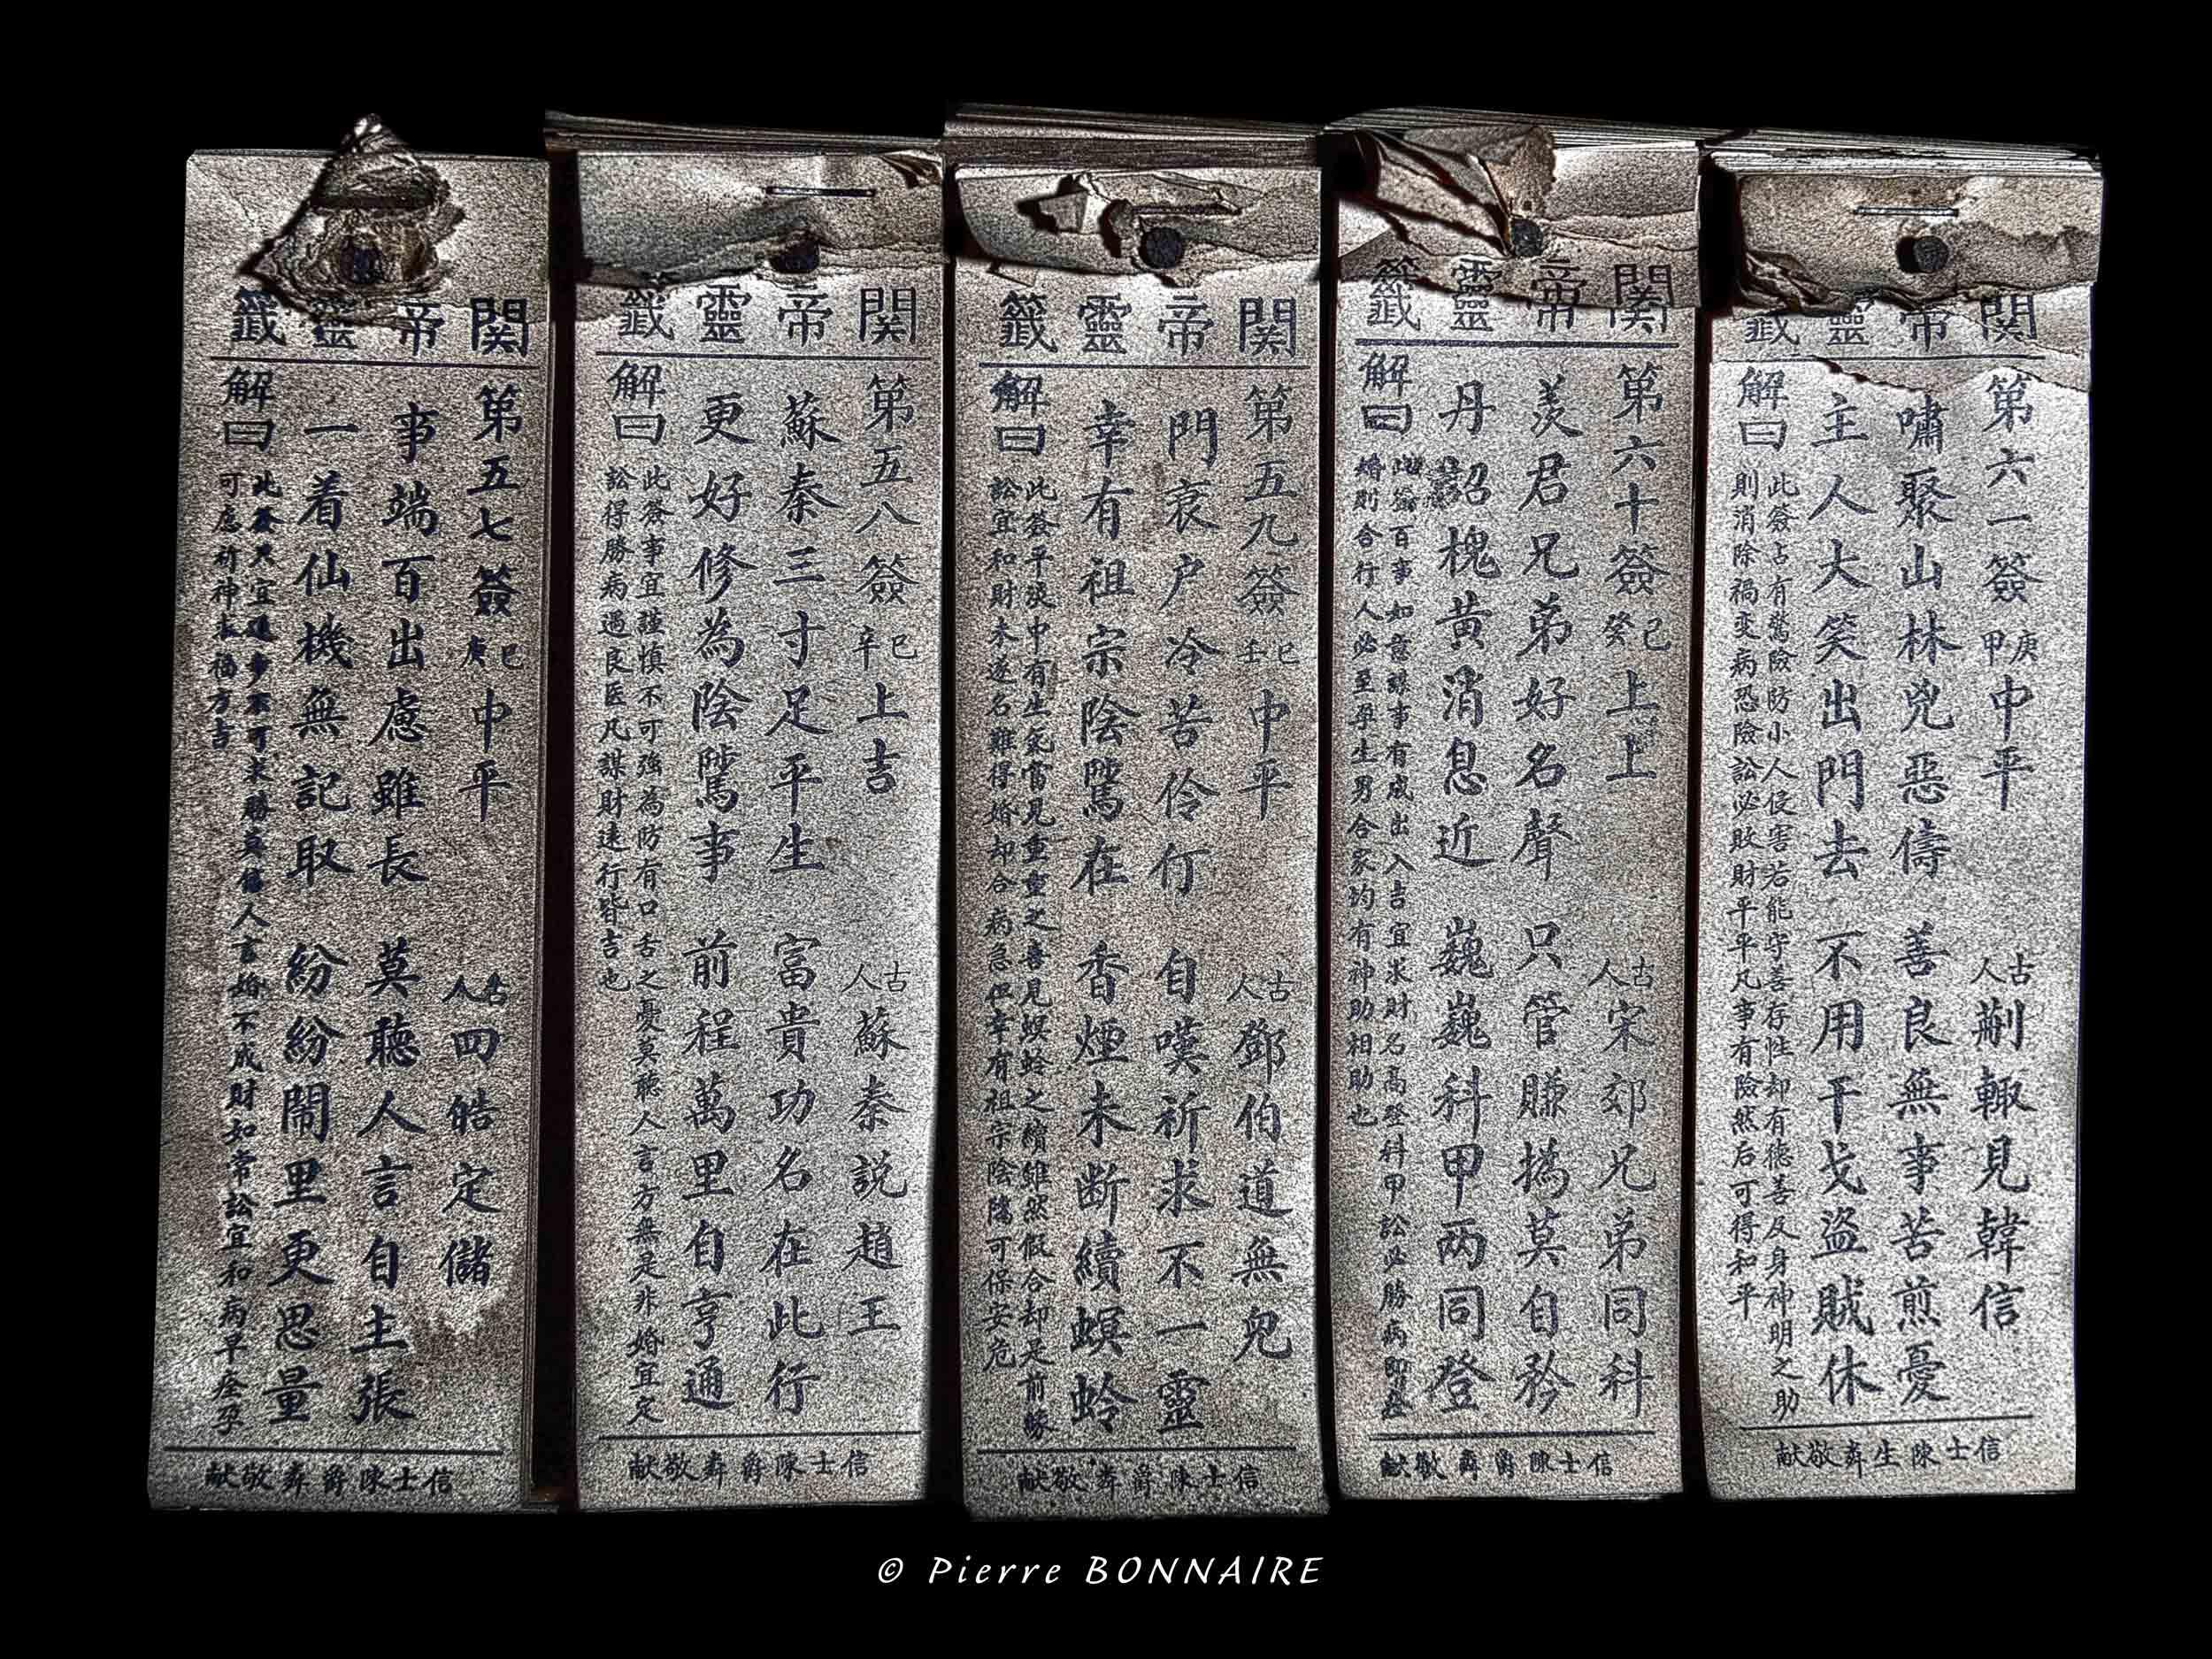 関帝靈籤
第五七簽 己庚 中平 古人 四皓定儲
事端百出慮雖長 莫聽人言自主張
一着仙機無記取 紛紛鬧里更思量
解曰
此簽只宜退步不可求勝莫信人言婚不成財如常訟宜和病早痊孕
可慮祈神 福方吉
信士陳爵 敬献
関帝靈籤
第五八簽 己辛 上吉 古人 蘇秦説趙王
蘇秦三寸足平生 富貴功名在此行
更好修為陰騭事 前程萬里自亨通
解曰
此簽事宜謹慎不可強為防有口舌之憂莫聽人言方無是非婚宜定
訟得勝病遇良医凡謀財遠行皆吉也
信士陳爵 敬献
関帝靈籤
第五九簽 己壬 中平 古人 鄧伯道無兒
門衰户冷苦伶仃 自嘆祈求不一靈
幸有祖宗陰騭在 香煙未断續螟蛉
解曰
此簽平淡中有生氣當見重重之喜見螟蛉之續雖然假合却是前緣
訟宜和財未遂名難得婚却合病急但幸有祖宗陰隲可保安危
信士陳爵 敬献
関帝靈籤
第六十簽 己癸 上上 古人 宋郊兄弟同科
羡君兄弟好名聲 只管賺撝莫自矜
丹詔槐黄消息近 巍巍科甲两同登
解曰
此簽百事如意謀事有成出入吉宜求財名高登科甲訟必勝病即痊
婚則合行人必至孕生男合家均有神助相助也
信士陳爵 敬献
関帝靈籤
第六一簽 庚甲 中平 古人 蒯輙見韓信
嘯聚山林兇惡儔 善良無事苦煎憂
主人大笑出門去 不用干戈盜賊休
解曰
此簽占有驚險防小人侵害若能守善存性却有德善及身神明之助
則消除禍变病恐險訟必敗財平平凡事有險然后可得和平
信士陳生 敬献
© Pierre BONNAIRE